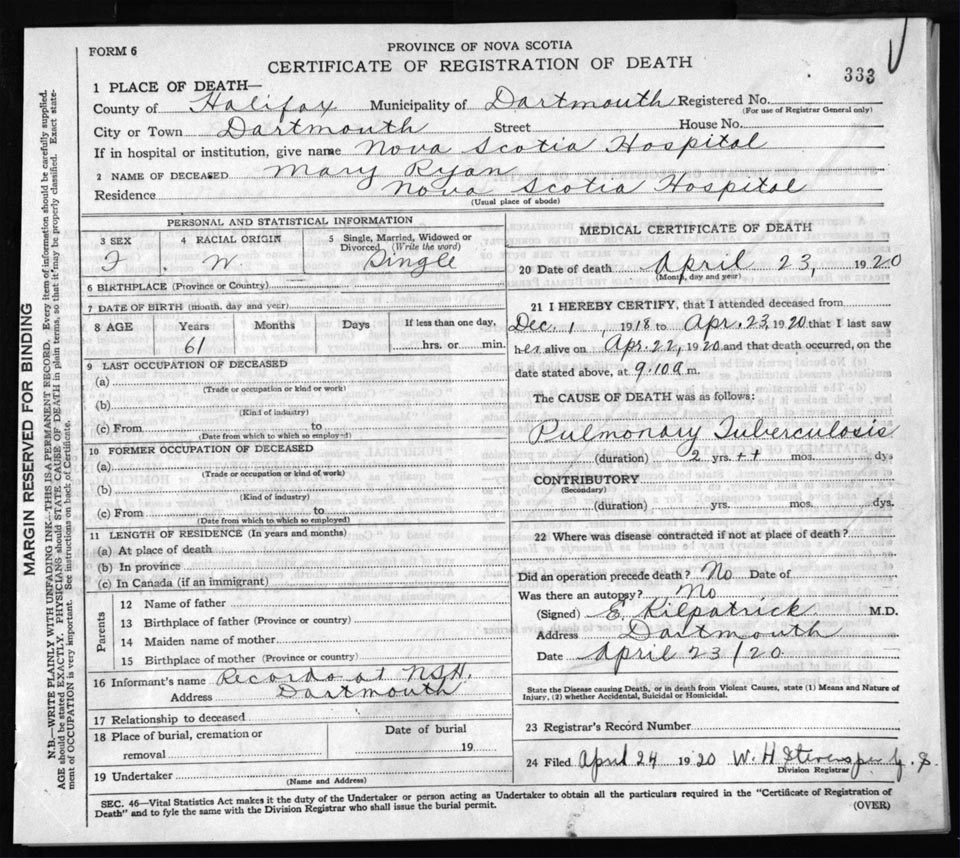 FORM 6
PROVINCE OF NOVA SCOTIA
CERTIFICATE OF REGISTRATION OF DEATH
333
1 PLACE OF DEATH—
County of Halifax Municipality of Dartmouth Registered No.
(For use of Registrar General only)
City or Town Dartmouth Street House No.
If in hospital or institution, give name Nova Scotia Hospital
2 NAME OF DECEASED Mary Ryan
Residence Nova Scotia Hospital
(Usual place of abode)
PERSONAL AND STATISTICAL INFORMATION
3 SEX 4 RACIAL ORIGIN 5 Single, Married, Widowed or
Divorced (Write the word)
F W. Single
6 BIRTHPLACE (Province or Country)
7 DATE OF BIRTH (month, day and year)
8 AGE Years Months Days If less than one day,
61 hrs. or min.
9 LAST OCCUPATION OF DECEASED
(a)
(Trade or occupation or kind or work)
(b)
(Kind of industry)
(c) From to
(Date from which to which so employed)
10 FORMER OCCUPATION OF DECEASED
(a)
(Trade or occupation or kind of work)
(b)
(Kind of industry)
(c) From to
(Date from which to which so employed)
11 LENGTH OF RESIDENCE (In years and months)
(a) At place of death
(b) In province
(c) In Canada (if an immigrant)
Parents
12 Name of father
13 Birthplace of father (Province or country)
14 Maiden name of mother
15 Birthplace of mother (Province or country)
16 Informant's name Records at N.S.H.
Address Dartmouth
17 Relationship to deceased
18 Place of burial, cremation or
removal
Date of burial
19
19 Undertaker
(Name and Address)
MEDICAL CERTIFICATE OF DEATH
20 Date of death April 23, 1920
(Month, day and year)
21 I HEREBY CERTIFY, that I attended deceased from
Dec. 1, 1918 to Apr. 23, 1920 that I last saw
her alive on Apr. 22, 1920 and that death occurred, on the
date stated above, at 9.10 a m.
The CAUSE OF DEATH was as follows:
Pulmonary Tuberculosis
(duration) 2 yrs. ++ mos. dys
CONTRIBUTORY
(Secondary)
(duration) yrs. mos. dys.
22 Where was disease contracted if not at place of death?
Did an operation precede death? No Date of
Was there an autopsy? No
(Signed) E. Kilpatrick M.D.
Address Dartmouth
Date April 23/20
State the Disease causing Death, or in death from Violent Causes, state (1) Means and Nature of
Injury, (2) whether Accidental, Suicidal or Homicidal.
23 Registrar's Record Number
24 Filed April 24 1920 W. H.
Division Registrar
SEC. 46—Vital Statistics Act makes it the duty of the Undertaker or person acting as Undertaker to obtain all the particulars required in the "Certificate of Registration of
Death" and to fyle the same with the Division Registrar who shall issue the burial permit.
(OVER)
MARGIN RESERVED FOR BINDING
N.B.—WRITE PLAINLY WITH UNFADING INK—THIS IS A PERMANENT RECORD. Every item of information should be carefully supplied.
AGE should be stated EXACTLY. PHYSICIANS should STATE CAUSE OF DEATH in plain terms, so that it may be properly classified. Exact state-
ment of OCCUPATION is very important. See instructions on back of Certificate.